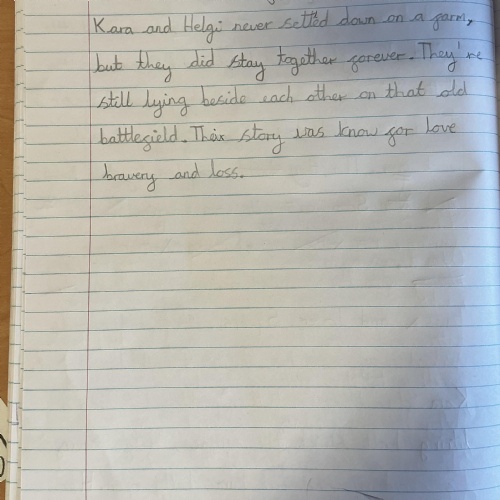 Kara and Helgi never settled down on a farm,
but they did stay together forever. They're
still lying beside each other on that old
battlefield. Their story was know for love
bravery and loss.